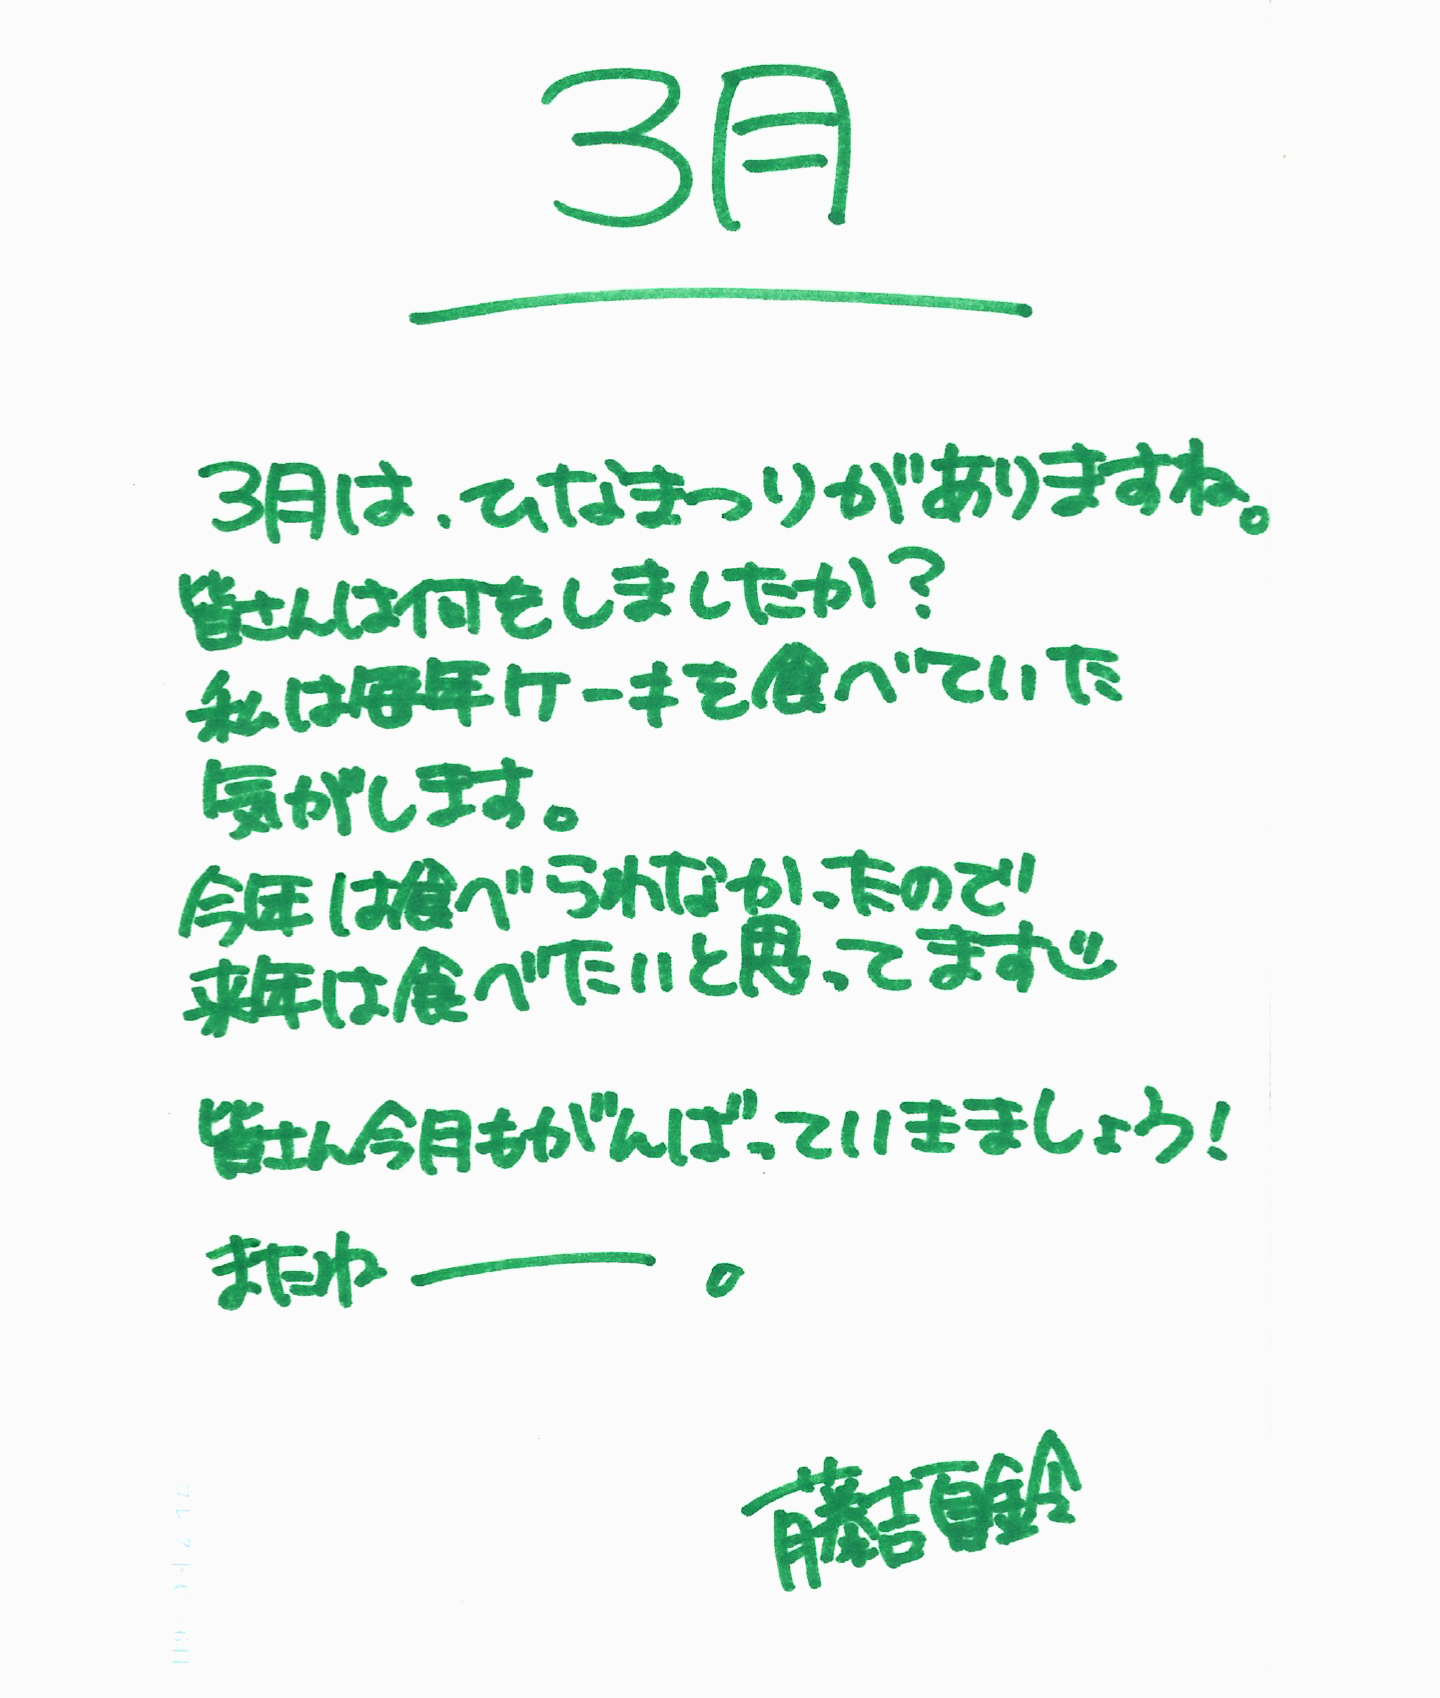 3月
3月は、ひなまつりがありますね。
皆さんは何をしましたか?
私は毎年ケーキを食べていた
気がします。
今年は食べられなかったので
来年は食べたいと思ってます
皆さん今月もがんばっていきましょう!
またね——。
藤吉夏鈴